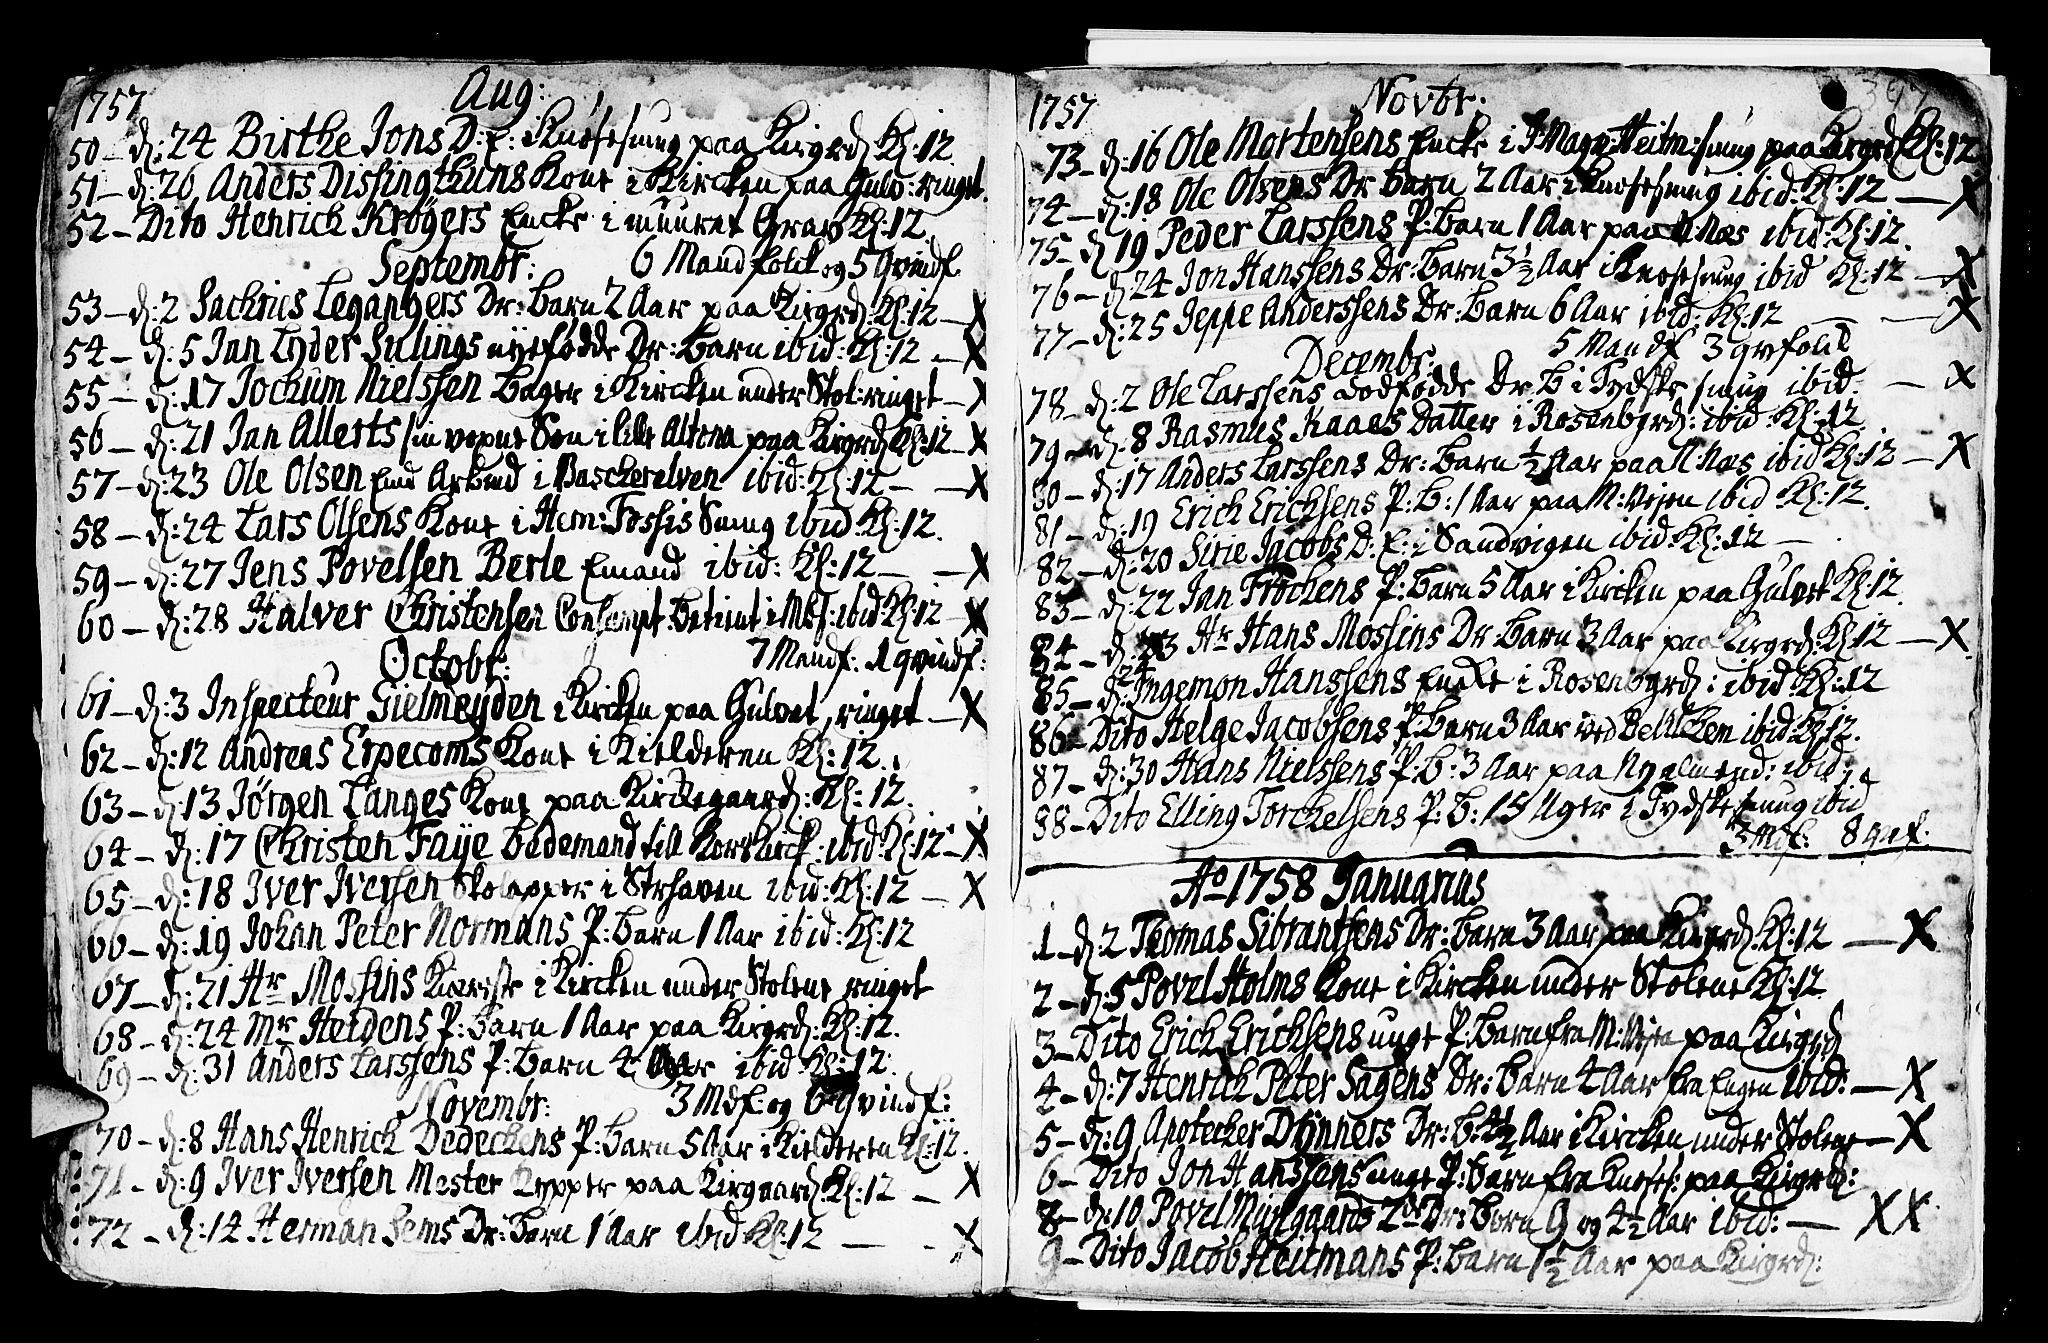 1757 Aug:
50 – d: 24 Birthe Jons D: E: i Knøsesmug paa Kirgrd Kl: 12
51 – d: 26 Anders Dissingthuns Kone i Kircken paa Gulv: ringet.
52 – Dito Henrich Krøgers Encke i muuret Grav Kl: 12
Septembr: 6 Mandfolck og 5 Qvindf.
53 – d: 2 Sachries Legangers Dr: Barn 2 Aar paa Kirgrd: Kl: 12 – X
54 – d: 5 Jan Lyder Sulings nyefødde Dr: Barn ibid: Kl: 12 – X
55 – d: 17 Jochum Nielssen Bager i Kircken under Stol: ringet – X
56 – d: 21 Jan Allerts sin voxne Søn i lille Altona paa Kirgrd Kl: 12 – X
57 – d: 23 Ole Olsen i ibid: Kl: 12 – – X
58 – d: 24 Lars Olsens Kone i Hem: Fossis Smug ibid Kl: 12.
59 – d: 27 Jens Povelsen Berle Emand ibid: Kl: 12 – – X
60 – d: 28 Halver Christensen Consumpt: Betient i ibid Kl: 12 – X
Octobr: 7 Mandf: 1 qvindf:
61 – d: 3 Inspecteur Gielmeyden i Kircken paa Gulvet, ringet – X
62 – d: 12 Andreas Erpecoms Kone i Kielderen Kl: 12.
63 – d: 13 Jørgen Langes Kone paa Kirckegaard: Kl: 12.
64 – d: 17 Christen Faye Bedemand till Korskirck: ibid: Kl: 12 – X
65 – d: 18 Iver Iversen i Strhaven ibid: Kl: 12 – X
66 – d: 19 Johan Peter Normans P: Barn 1 Aar ibid: Kl: 12
67 – d: 21 Hr Mossins Kiereste i Kircken under Stolene ringet
68 – d: 24 Mr Heidens P: Barn 1 Aar paa Kirgrd: Kl: 12.
69 – d: 31 Anders Larssens P: Barn 4 Aar ibid Kl: 12:
Novembr: 3 Mdf: og 6 Qvindf:
70 – d: 8 Hans Henrich Dedeckens P: Barn 5 Aar i Kielderen Kl: 12.
71 – d: 9 Iver Iversen Mester Kypper paa Kirgaard: Kl: 12 – X
72 – d: 14 Herman Lems Dr: Barn 1 Aar ibid Kl: 12 – – X
1757 Novbr: 397
73 – d: 16 Ole Mortensens Encke i smug paa Kirgrd Kl: 12
74 – d: 18 Ole Olsens Dr Barn 2 Aar i Knøsesmug ibid: Kl: 12 – X
75 – d 19 Peder Larssens P: Barn 1 Aar paa N: Næs ibid: Kl: 12.
76 – d: 24 Jon Hanssens Dr: Barn 3½ Aar i Knøsesmug ibid Kl: 12 – X
77 – d: 25 Jeppe Anderssens Dr: Barn 6 Aar ibid: Kl: 12 – – X
Decembr: 5 Mandf 3 qvfolck
78 – d: 2 Ole Larssens dødfødde Dr: B i Tydske smug ibid – X
79 – d: 8 Rasmus Kaaes Datter i Rosenbgrd: ibid Kl: 12
80 – d: 17 Anders Larssens Dr: Barn ½ Aar paa N: Næs ibid Kl: 12 – X
81 – d: 19 Erich Erichsens P: B: 1 Aar paa M: Vejen ibid Kl: 12.
82 – d: 20 Sirie Jacobs D: E: i Sandvigen ibid: Kl: 12 –
83 – d: 22 Jan Frøchens P: Barn 5 Aar i Kircken paa Gulvet Kl: 12
84 – d: 23 Hr Hans Mossins Dr: Barn 3 Aar paa Kirgrd: Kl: 12 – X
85 – d: 24 Ingemon Hanssens Encke i Rosenbgrd: ibid: Kl: 12
86 – Dito Helge Jacobsens P: Barn 3 Aar ved ibid Kl: 12.
87 – d: 30 Hans Nielssens P: B: 3 Aar paa Nyalmend: ibid:
88 – Dito Elling Torckelsens P: B: 15 Uger i Tydske smug ibid
3 Mdf: 8 qvf:
Ao 1758 Januarius
1 – d: 2 Thomas Sibrantsens Dr: Barn 3 Aar paa Kirgrd: Kl: 12 – X
2 – d: 5 Povel Holms Kone i Kircken under Stolene Kl: 12
3 – Dito Erich Erichsens unge P: Barn fra M: Vejen paa Kirgrd
4 – d: 7 Henrich Peter Sagens Dr: Barn 4 Aar fra Engen ibid: – X
5 – d: 9 Apotecker Dynners Dr: B: 4½ Aar i Kircken under Stolene – X
6 – Dito Jon Hanssens unge P: Barn fra Knøses: paa Kirgrd:
8 – d: 10 Povel 2de Dr: Børn 9 og 4½ Aar ibid: – XX
9 – Dito Jacob Heitmans P: Barn 1½ Aar paa Kirgrd: